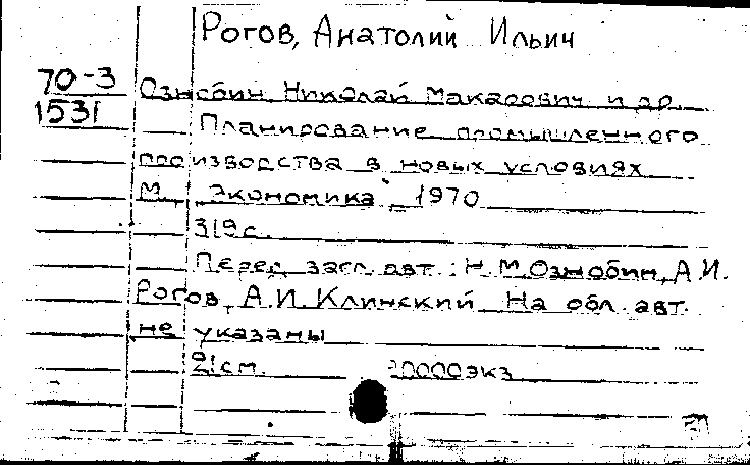 Рогов, Анатолий Ильич
70-3
1531
Ознобин, Николай Макарович и др.
Планирование промышленного
производства в новых условиях
М., "Экономика", 1970
319 с.
Перед загл. авт.: Н.М. Ознобин, А.И.
Рогов, А.И. Клинский. На обл. авт.
не указаны
21 см. 20000 экз